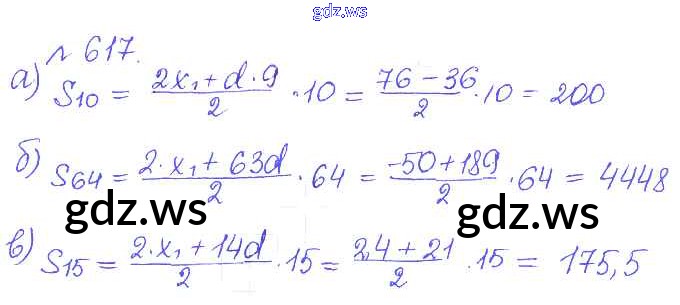 gdz.ws
№ 617.
а) S₁₀ = (2x₁ + d · 9)/2 · 10 = (76 − 36)/2 · 10 = 200
б) S₆₄ = (2 · x₁ + 63d)/2 · 64 = (−50 + 189)/2 · 64 = 4448
gdz.ws gdz.ws
в) S₁₅ = (2 · x₁ + 14d)/2 · 15 = (2,4 + 21)/2 · 15 = 175,5